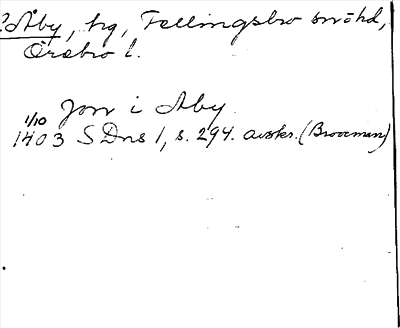 ? Åby, hg, Fellingsbro snöhd,
Örebro l.
Jon i Aby
1/10
1403 SDns 1, s. 294. avskr. (Brooman)